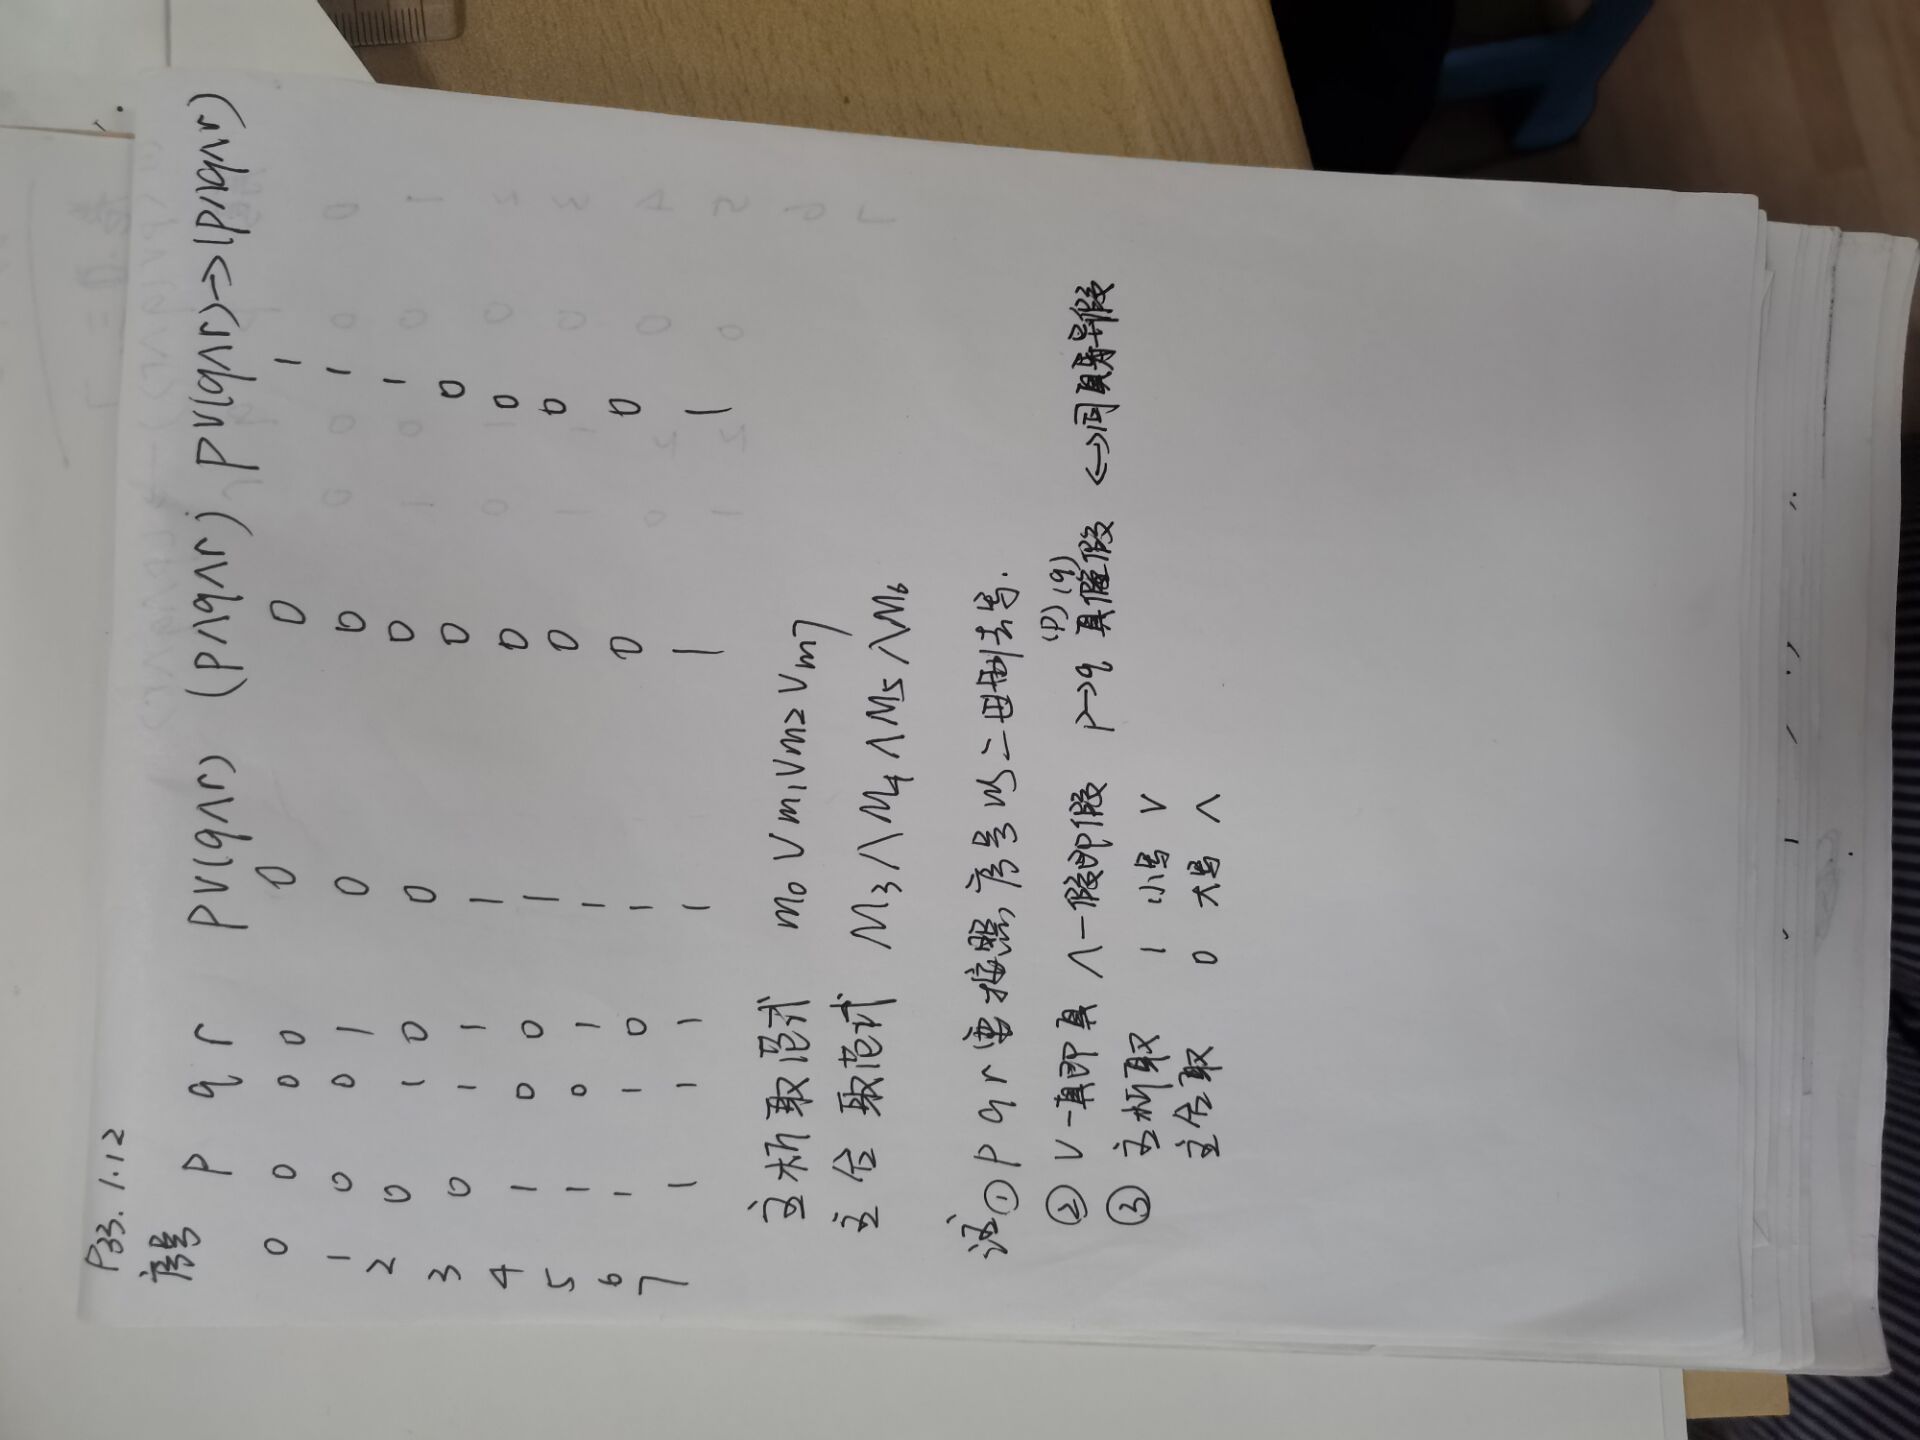 P33. 1.12
序号 p q r p∨(q∧r) (p∧q∧r) p∨(q∧r)→(p∧q∧r)
0 0 0 0 0 0 1
1 0 0 1 0 0 1
2 0 1 0 0 0 1
3 0 1 1 1 0 0
4 1 0 0 1 0 0
5 1 0 1 1 0 0
6 1 1 0 1 0 0
7 1 1 1 1 1 1
主析取范式 m0∨m1∨m2∨m7
主合取范式 M3∧M4∧M5∧M6
注①p q r要按照序号以二进制去写.
(p) (q)
②∨一真即真 ∧一假即假 p→q 真假假 ↔同真异假
③主析取 1 小写 ∨
主合取 0 大写 ∧